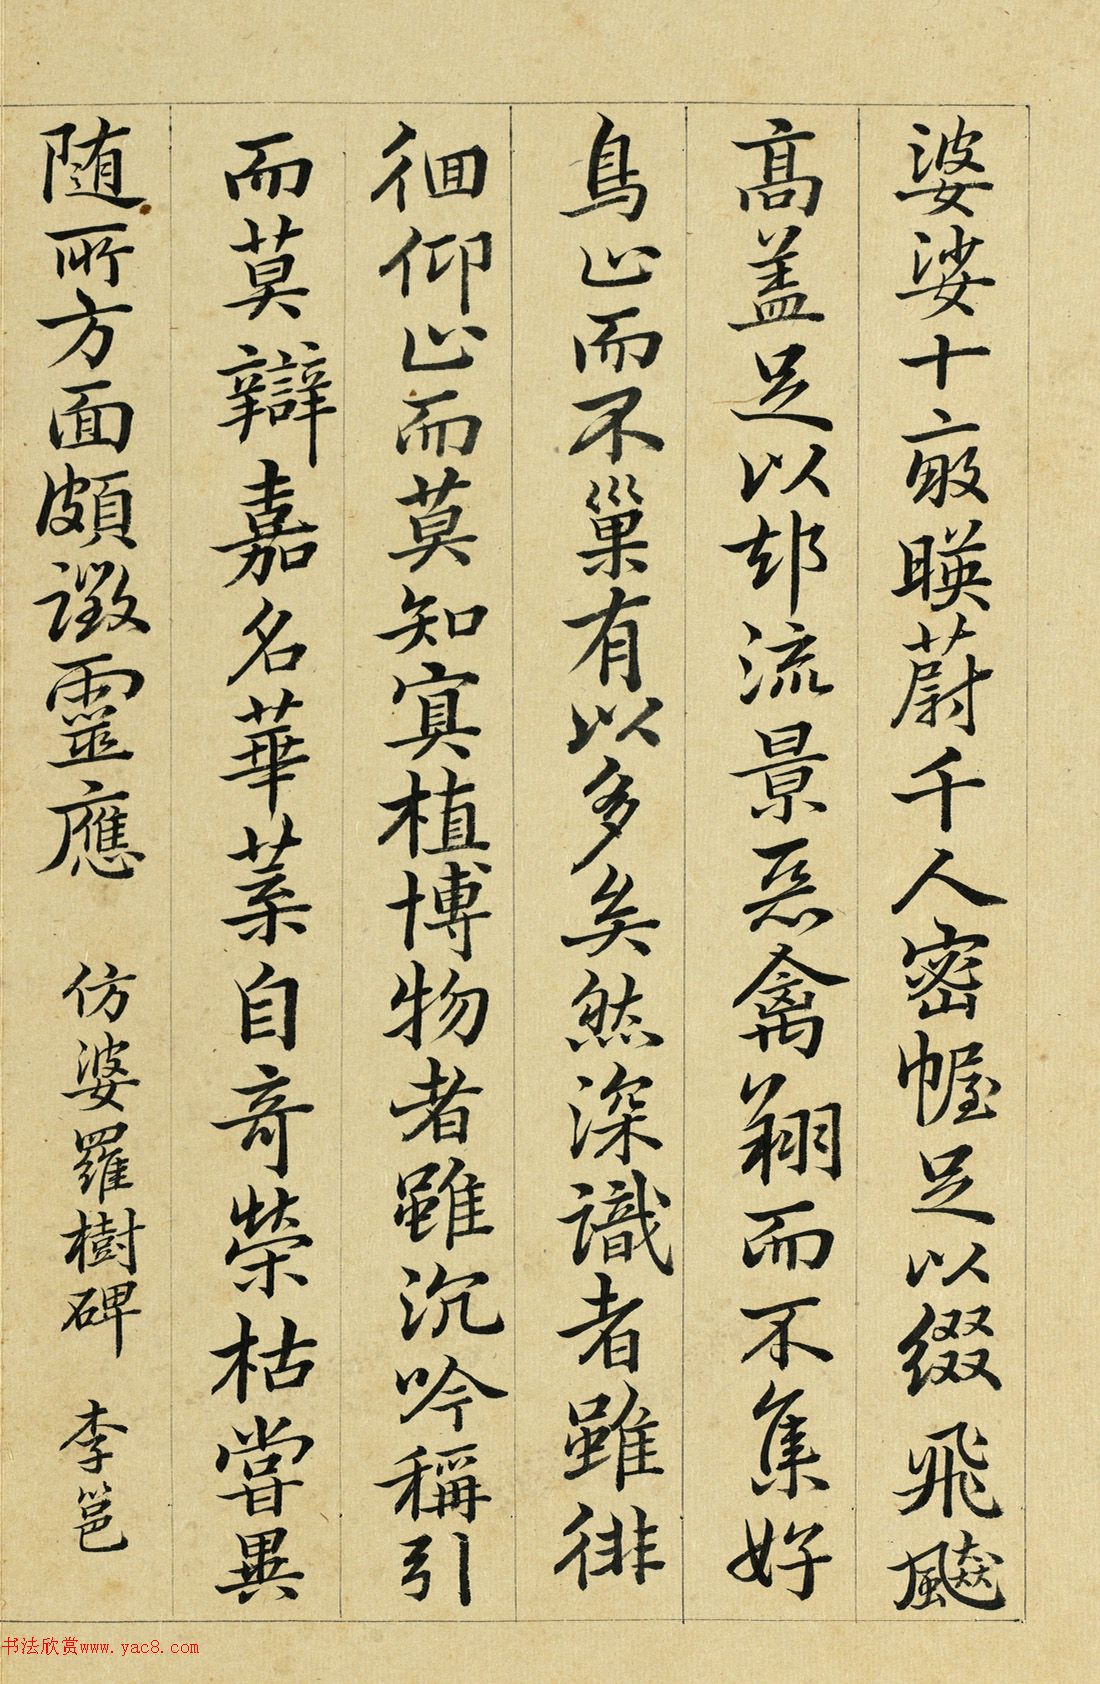 婆娑十畝暎蔚千人密幄足以綴飛飈
高盖足以却流景惡禽翔而不集好
鳥止而不巢有以多矣然深識者雖徘
徊仰止而莫知冥植博物者雖沉吟稱引
而莫辯嘉名華葉自奇榮枯嘗異
随所方面頗徵靈應 仿婆羅樹碑 李邕
书法欣赏www.yac8.com